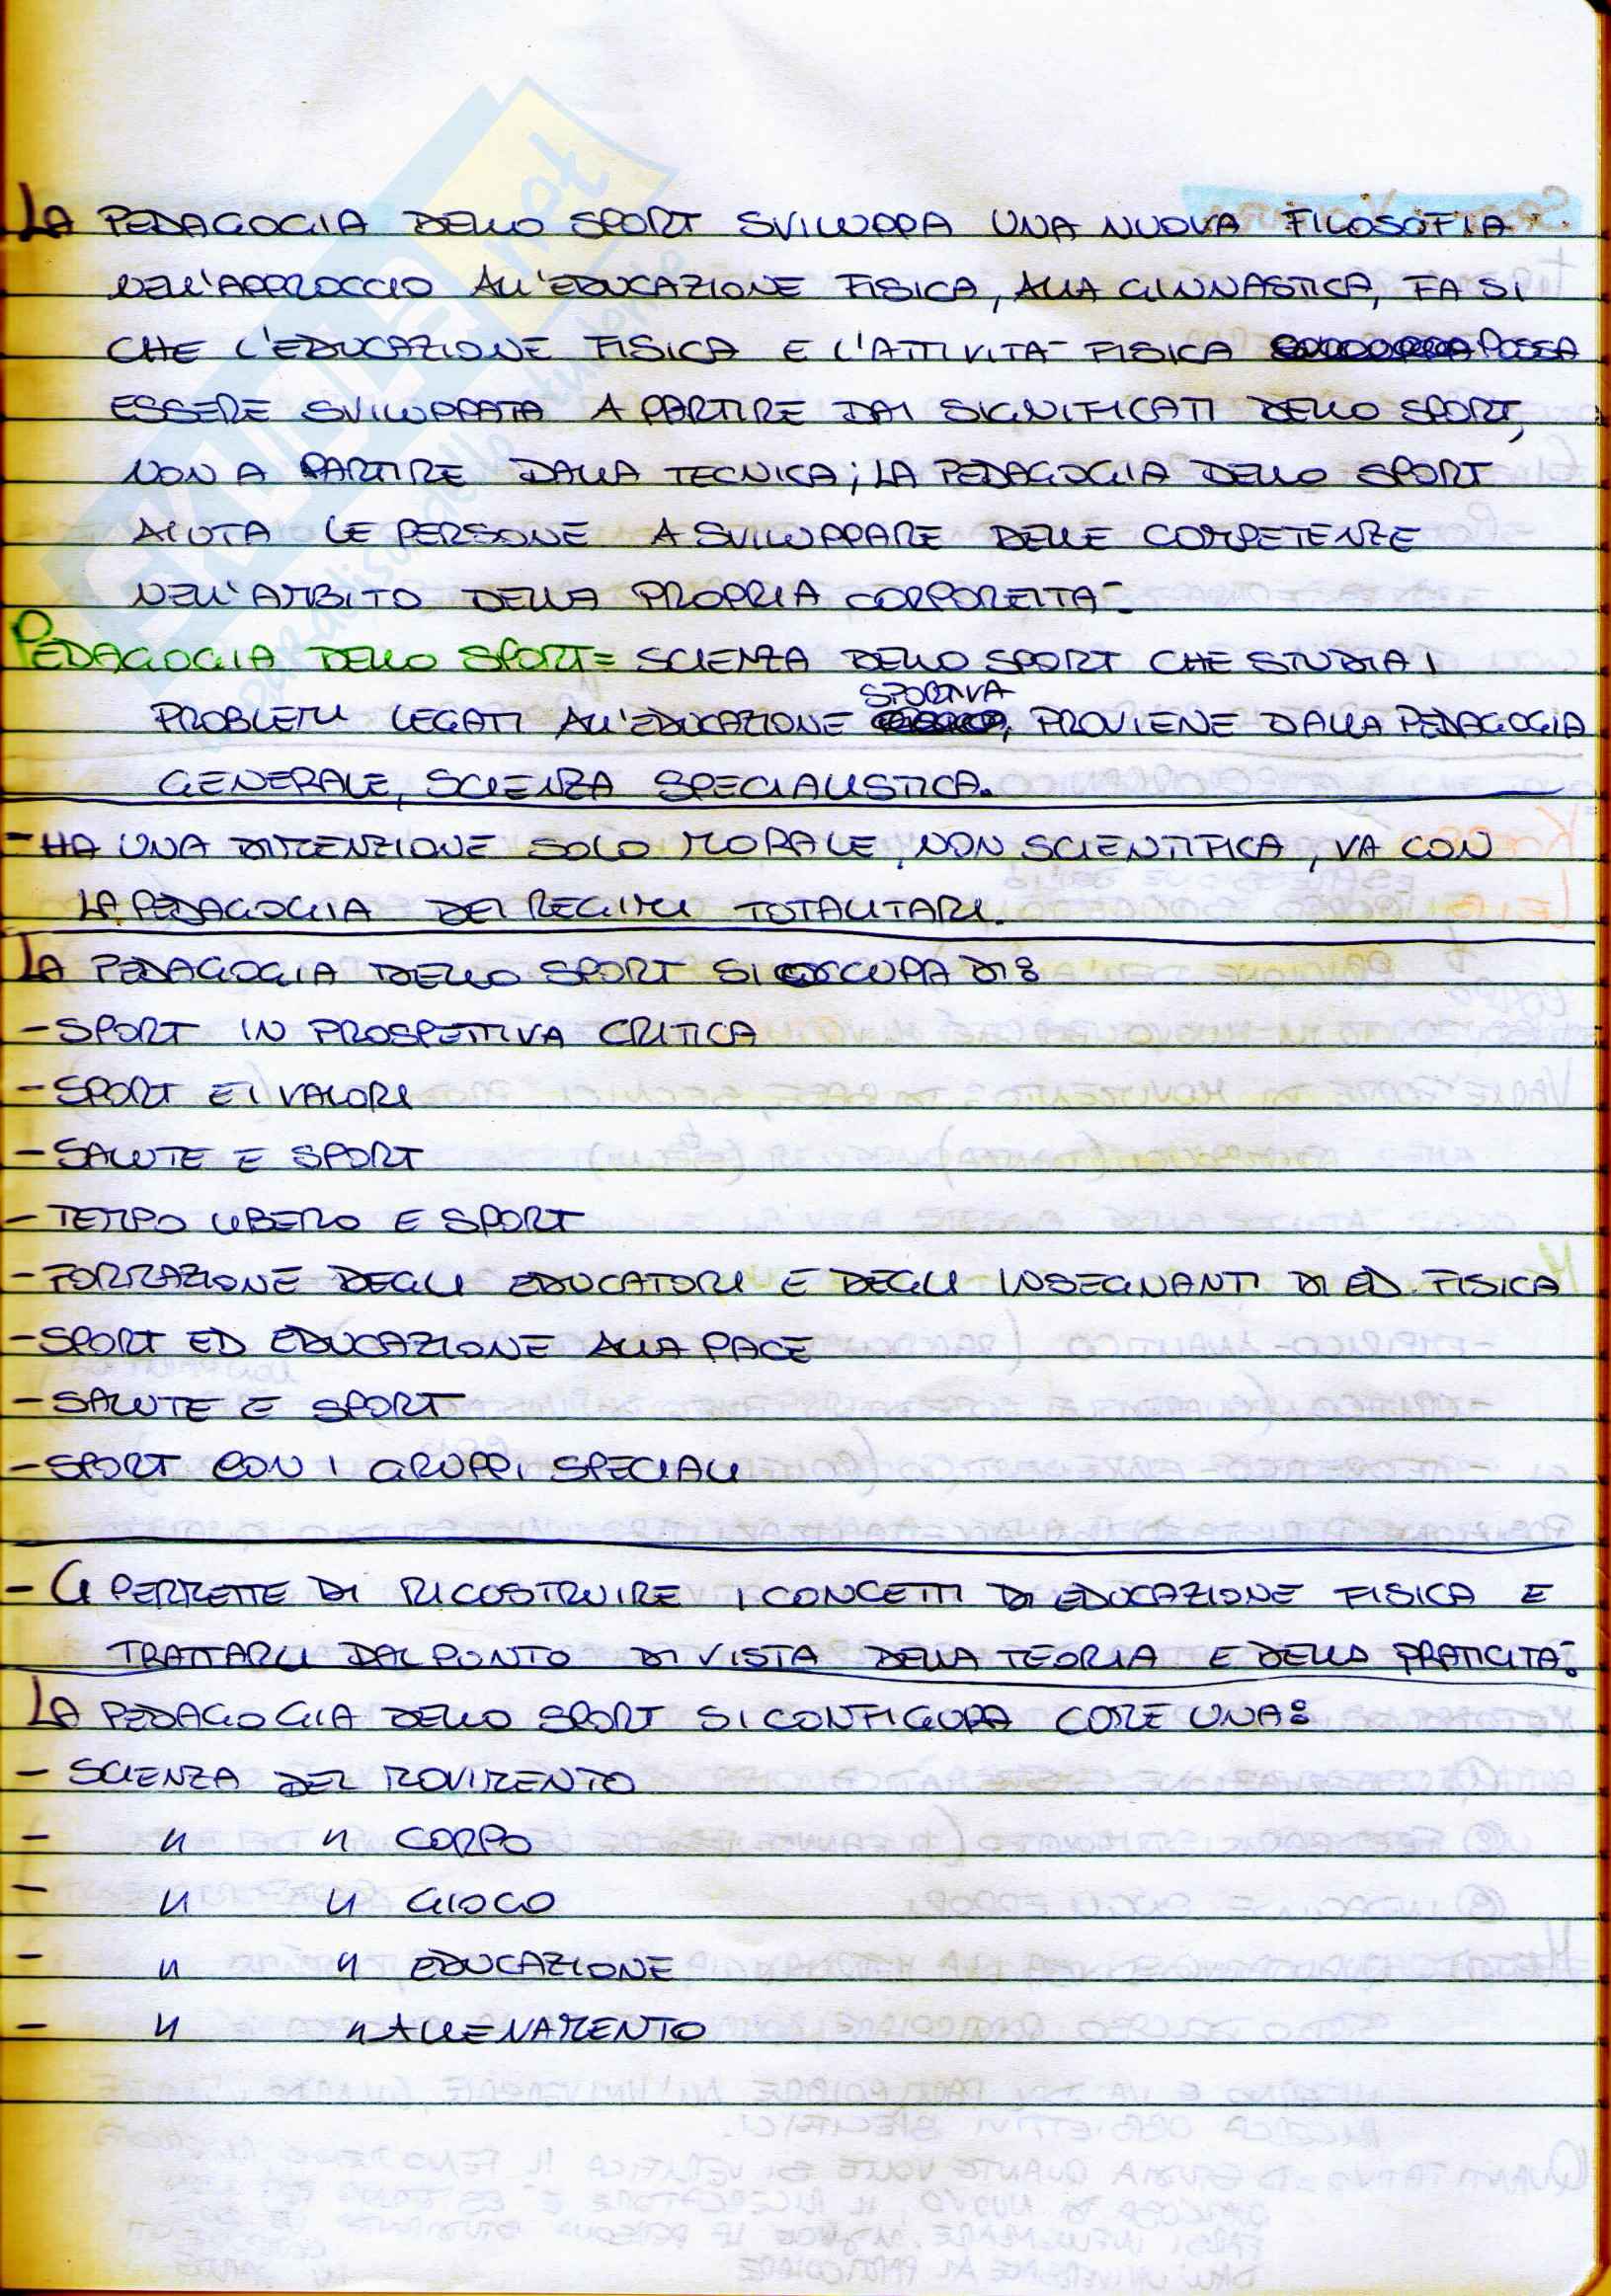 LA PEDAGOGIA DELLO SPORT SVILUPPA UNA NUOVA FILOSOFIA
NELL'APPROCCIO ALL'EDUCAZIONE FISICA, ALLA GINNASTICA, FA SI
CHE L'EDUCAZIONE FISICA E L'ATTIVITA' FISICA POSSA
ESSERE SVILUPPATA A PARTIRE DAI SIGNIFICATI DELLO SPORT,
NON A PARTIRE DALLA TECNICA; LA PEDAGOGIA DELLO SPORT
AIUTA LE PERSONE A SVILUPPARE DELLE COMPETENZE
NELL'AMBITO DELLA PROPRIA CORPOREITA'.
PEDAGOGIA DELLO SPORT= SCIENZA DELLO SPORT CHE STUDIA I
PROBLEMI LEGATI ALL'EDUCAZIONE SPORTIVA, PROVIENE DALLA PEDAGOGIA
GENERALE, SCIENZA SPECIALISTICA.
- HA UNA DIMENZIONE SOLO MORALE, NON SCIENTIFICA, VA CON
LA PEDAGOGIA DEI REGIMI TOTALITARI.
LA PEDAGOGIA DELLO SPORT SI OCCUPA DI:
- SPORT IN PROSPETTIVA CRITICA
- SPORT E I VALORI
- SALUTE E SPORT
- TEMPO LIBERO E SPORT
- FORMAZIONE DEGLI EDUCATORI E DEGLI INSEGNANTI DI ED. FISICA
- SPORT ED EDUCAZIONE ALLA PACE
- SALUTE E SPORT
- SPORT CON I GRUPPI SPECIALI
- CI PERMETTE DI RICOSTRUIRE I CONCETTI DI EDUCAZIONE FISICA E
TRATTARLI DAL PUNTO DI VISTA DELLA TEORIA E DELLA PRATICITA'.
LA PEDAGOGIA DELLO SPORT SI CONFIGURA COME UNA:
- SCIENZA DEL MOVIMENTO
- " " CORPO
- " " GIOCO
- " " EDUCAZIONE
- " " ALLENAMENTO